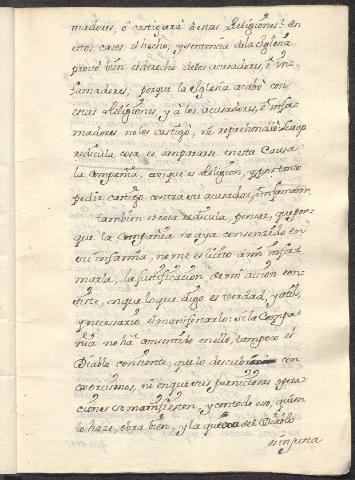 madores, ò castigarà à estas Religiones? En
estos casos el hecho, y sentencia de la Iglesia
provò bien el derecho de los acusadores, è in-
famadores; porque la Iglesia acabò con
estas Religiones, y à los acusadores, è infa-
madores no los castigò, ni reprehendiò: Luego
redicula cosa es ampararse en esta Causa
la Compañia, con que es Religion, y por tanto
pedir castigo contra su acusador, è infamador.
Tambien es cosa redicula, pensar, que por-
que la Compañia no aya consentido en
su infamia, no me es licito à mi infa-
marla; la justificacion de mi accion con-
siste, en que lo que digo es verdad, y util,
y necesario el manifestarlo: si la Compa-
ñia no ha consentido en ello, tampoco el
Diablo consiente, que lo descubran con
exorcismos, ni en que sus perniciosas opera-
ciones se manifiesten, y con todo eso, quien
lo haze, obra bien, y la quexa del Diablo
es injusta